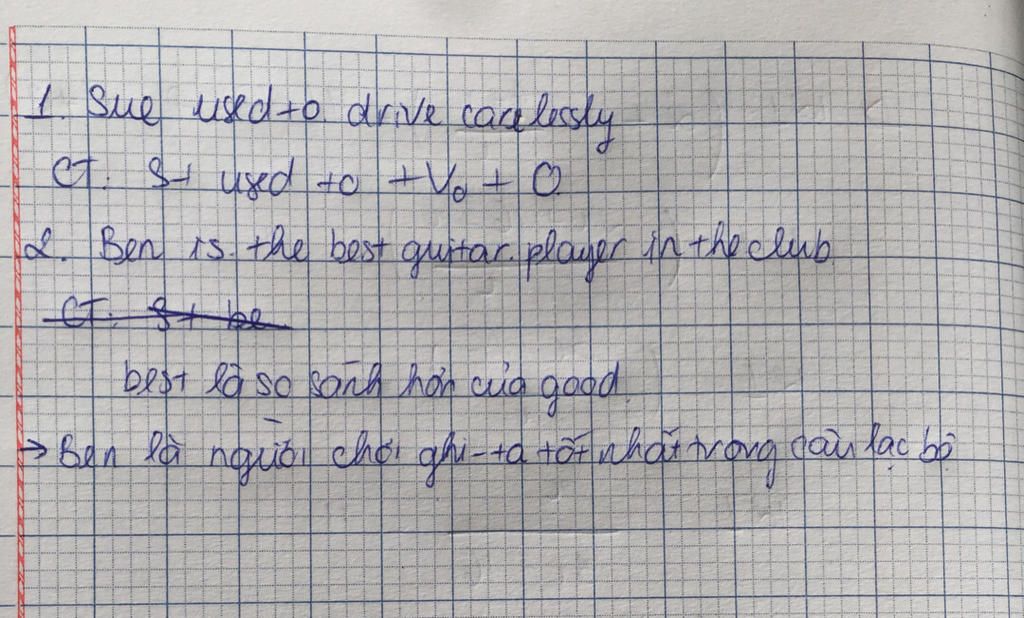 1. Sue used to drive carelessly
CT: S+ used to + V₀ + O
2. Ben is the best guitar player in the club
CT: S+ be
best là so sánh hơn của good
→ Ben là người chơi ghi-ta tốt nhất trong câu lạc bộ